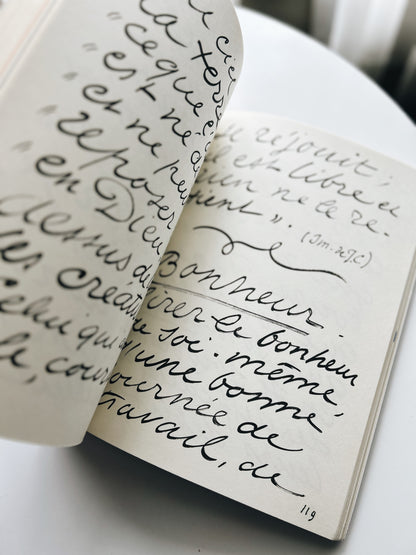 La terre
" ce que
" est né d
" et ne peut
reposer
" en Dieu
dessus de
les créat
Celui qui
le, cour
se réjouit;
il est libre et
rien ne le re-
tient ». (Im. de J.C)
Bonheur.
tirer le bonheur
de soi-même,
d'une bonne
journée de
travail, de
119